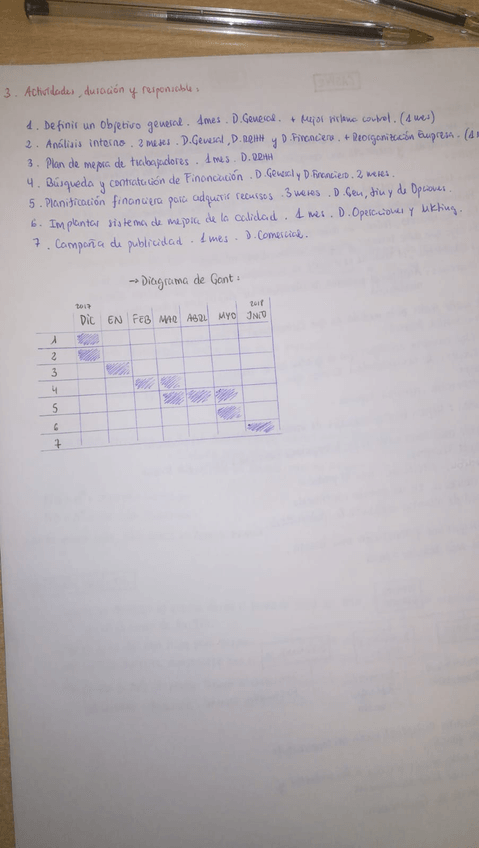 3. Actividades, duración y responsable:
1. Definir un Objetivo general. 1mes. D.General. + Mejor sistema control. (1 mes)
2. Análisis interno. 2 meses. D.General, D.RRHH y D.Financiera. + Reorganización Empresa. (1
3. Plan de mejora de trabajadores. 1 mes. D.RRHH
4. Búsqueda y contratación de Financiación. D.General y D.Financiero. 2 meses.
5. Planificación financiera para adquirir recursos. 3 meses. D.Gen, fin y de Opciones.
6. Implantar sistema de mejora de la calidad. 1 mes. D. Operaciones y Mkting.
7. Campaña de publicidad. 1 mes. D.Comercial.
→ Diagrama de Gant:
2017 2018
DIC EN FEB MAR ABRL MYO JNIO
1
2
3
4
5
6
7